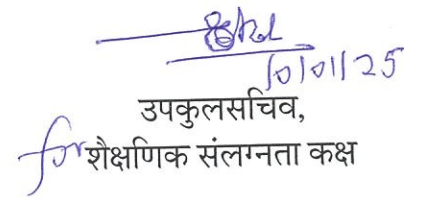 10/01/25
उपकुलसचिव,
for शैक्षणिक संलग्नता कक्ष